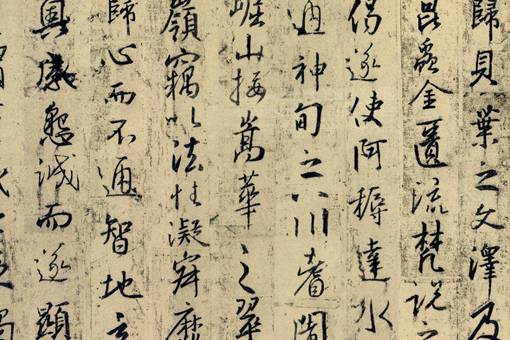 歸貝葉之文澤及
昆蟲金匱流梵説之
偈遂使阿耨達水
通神甸之八川耆闍
崛山接嵩華之翠
嶺竊以法性凝寂靡
歸心而不通智地玄
奧感懇誠而遂顯